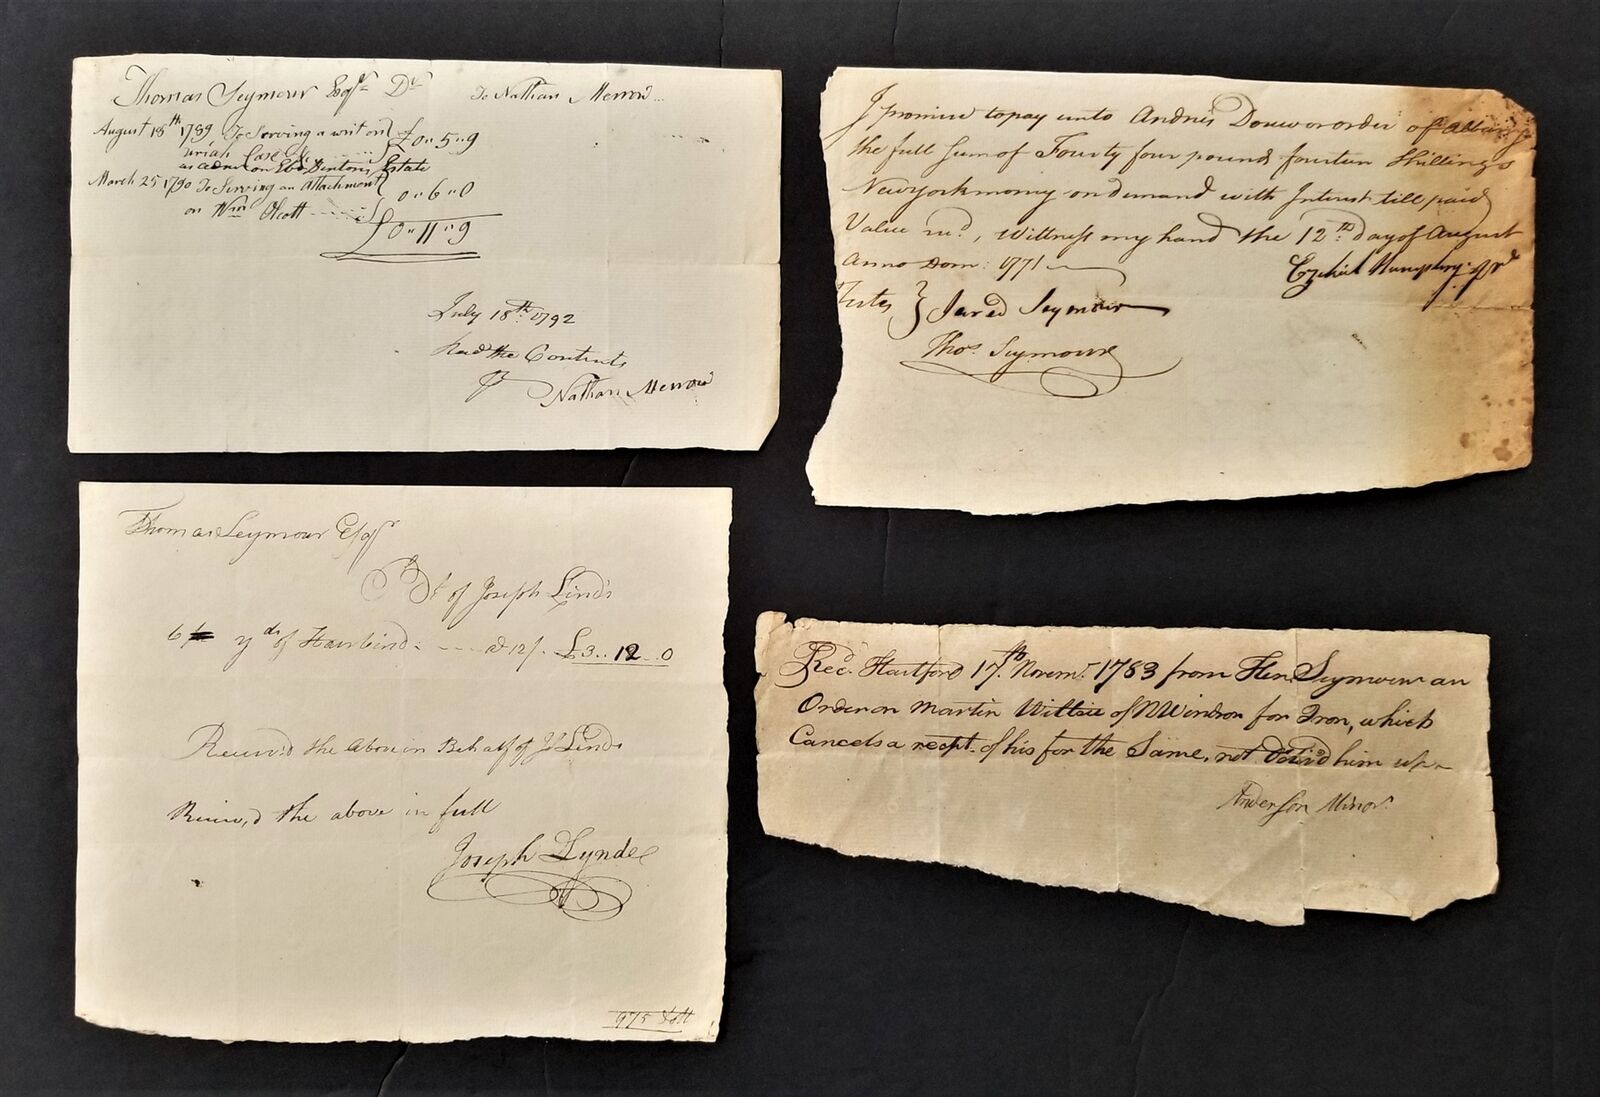 Thomas Seymour Esqr Dr To Nathan Merrow
August 18th 1789 To Serving a writ on } £0"5"9
uriah Case
as admr on Estate
March 25 1790 To Serving an Attachment } 0"6"0
on Wm Olcott
£0"11"9
July 18th 1792
Recd the Contents
Nathan Merrow
I promise to pay unto Andries Douw or order of Albany
the full Sum of Fourty four pounds fourteen Shillings
Newyork money on demand with Interest till paid
Value recd, Wittness my hand the 12th day of August
Anno Dom: 1771
Ezekiel Humphry
Testes } Jared Seymour
Thos Seymour
Thomas Seymour Esqr
Dr of Joseph Lind's
6 yds of Hairbind: a 12/. £3..12..0
Receiv'd the above in Behalf of J Linds
Reciev,d the above in full
Joseph Lynde
975
Recd. Hartford 17th. Novemr. 1783 from Hen. Seymour an
Order on Martin of Windsor for Iron, which
Cancels a recpt. of his for the Same, not him up
Anderson Minor